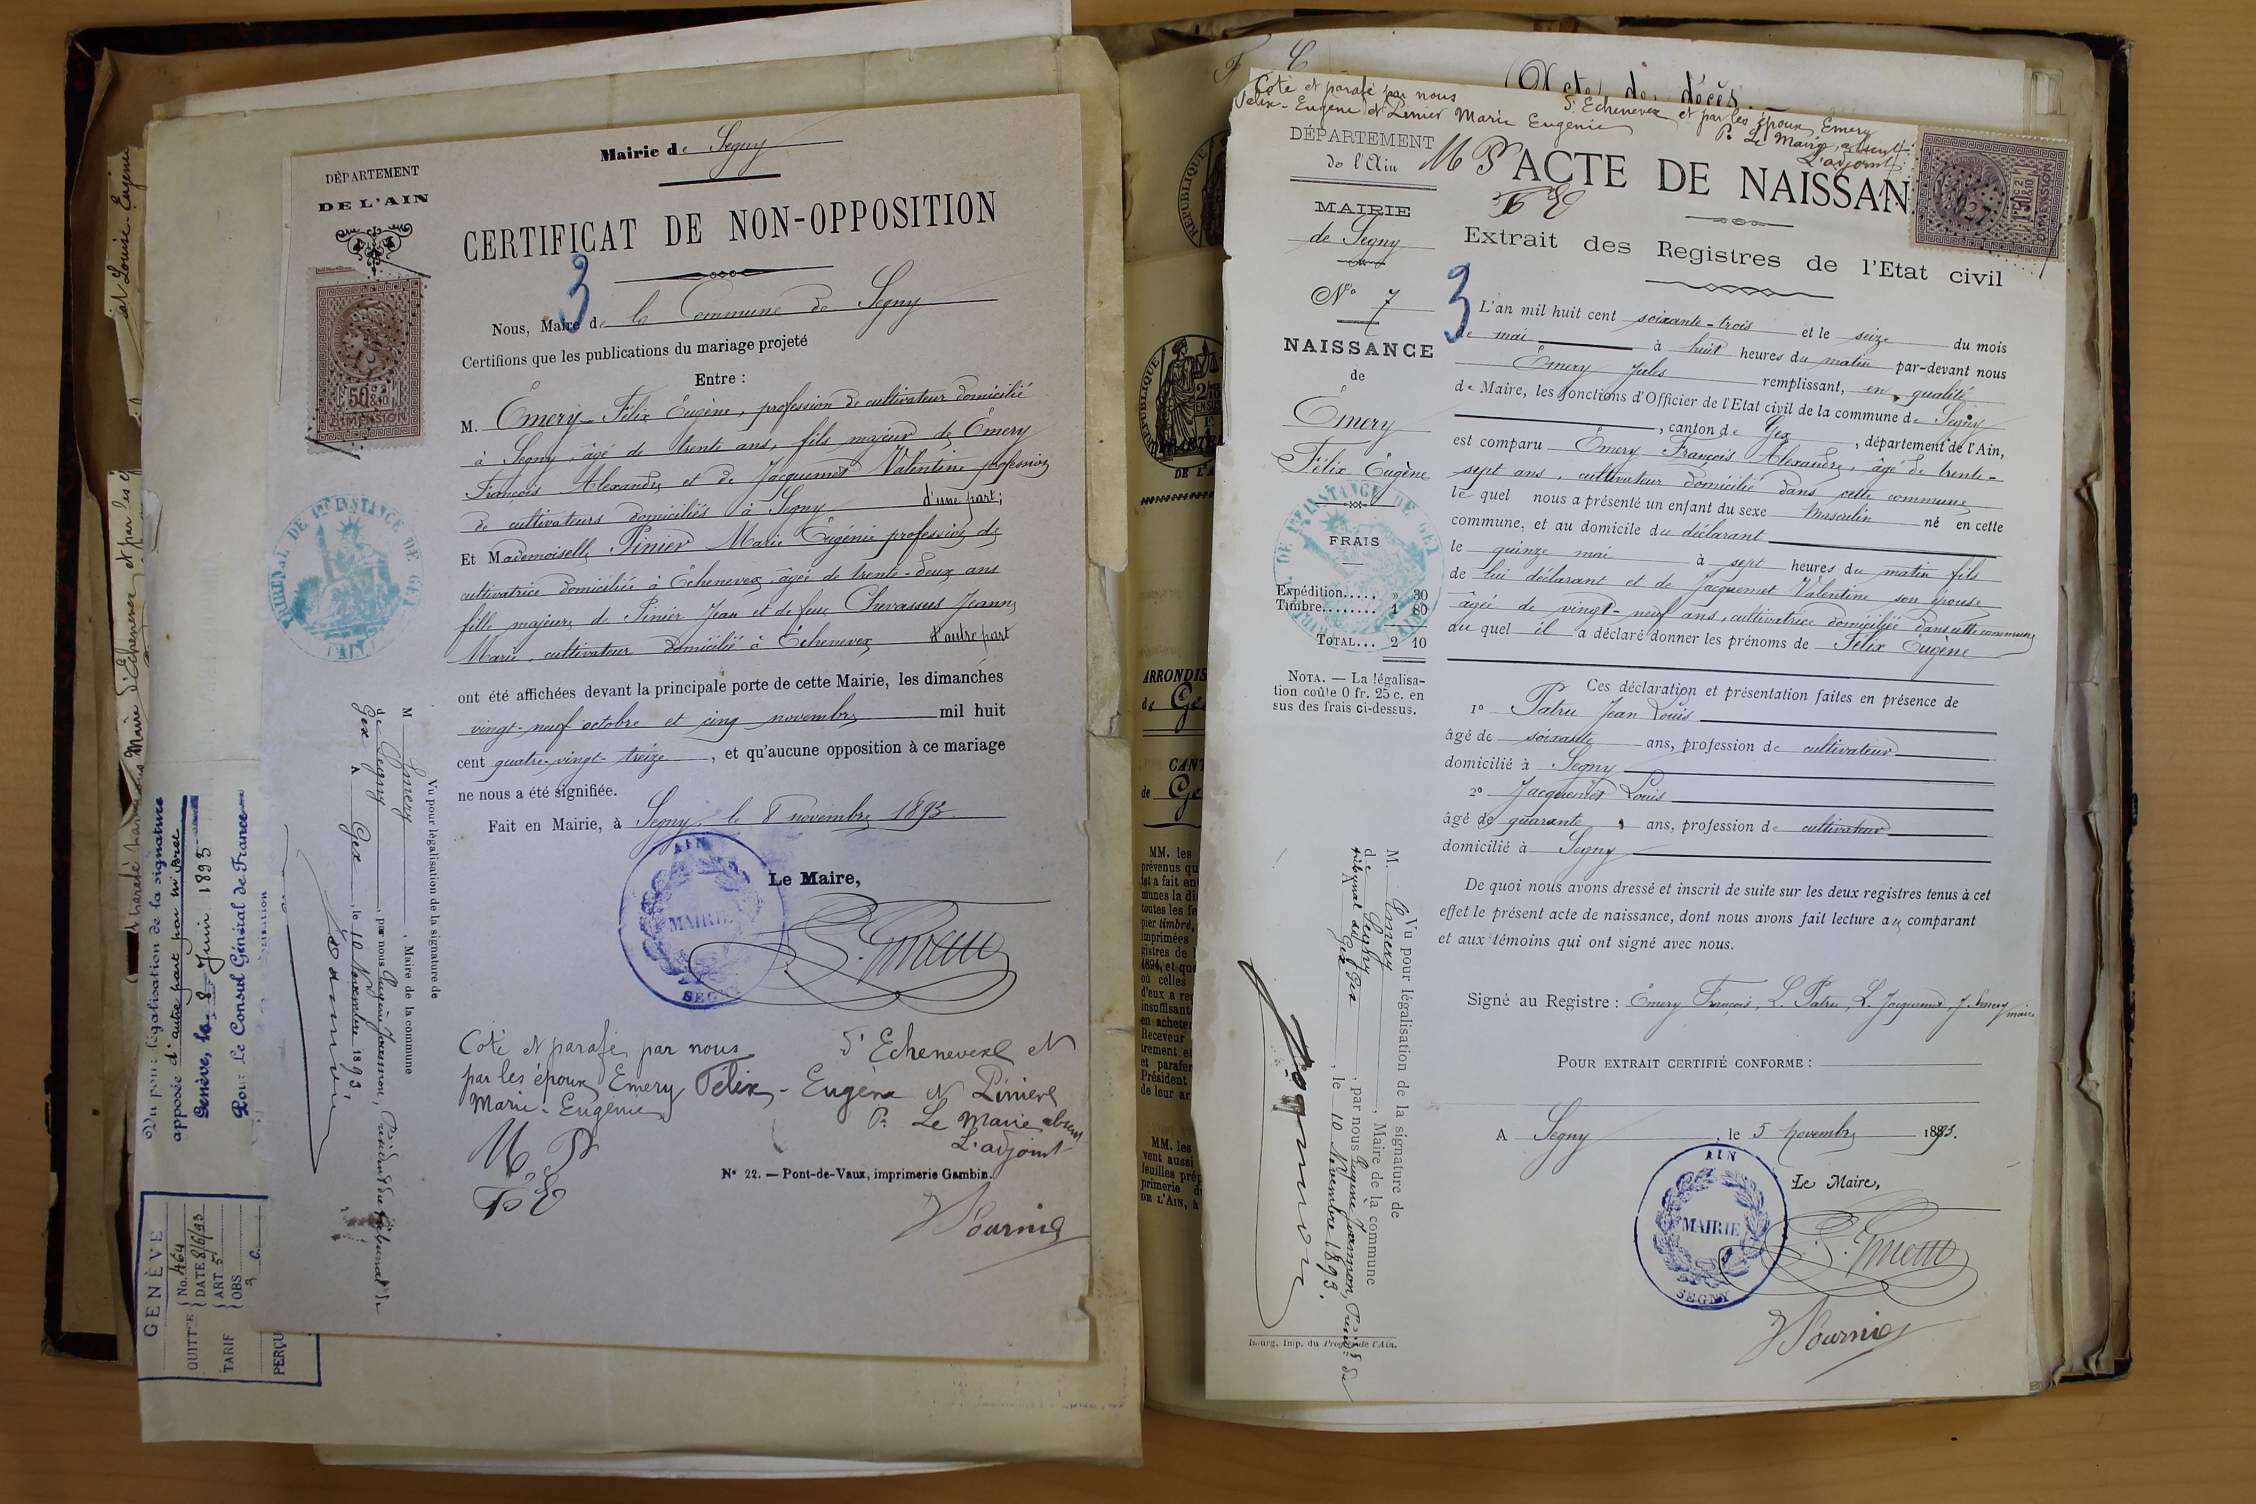 DÉPARTEMENT
DE L'AIN
Mairie de Segny
CERTIFICAT DE NON-OPPOSITION
3
Nous, Maire de la Commune de Segny
Certifions que les publications du mariage projeté
Entre :
M. Émery Félix Eugène, profession de cultivateur domicilié
à Segny, âgé de trente ans, fils majeur de Émery
François Alexandre et de Jacquemet Valentine profession
de cultivateurs domiciliés à Segny d'une part;
Et Mademoiselle Pinier Marie Eugénie profession de
cultivatrice domiciliée à Échenevex âgée de trente-deux ans
fille majeure de Pinier Jean et de feue Chevassus Jeanne
Marie, cultivateur domicilié à Échenevex d'autre part
ont été affichées devant la principale porte de cette Mairie, les dimanches
vingt-neuf octobre et cinq novembre mil huit
cent quatre-vingt-treize, et qu'aucune opposition à ce mariage
ne nous a été signifiée.
Fait en Mairie, à Segny, le 8 novembre 1893.
Le Maire,
AIN
MAIRIE
SEGNY
Coté et parafé par nous
par les époux Emery Félix-Eugène et Pinier
Marie-Eugénie
P. Le Maire absent
L'adjoint
M P
F E
N° 22. — Pont-de-Vaux, imprimerie Gambin.
50
DIMENSION
TRIBUNAL DE 1re INSTANCE DE GEX
Vu pour légalisation de la signature de
M Emery, Maire de la commune
de Segny, par nous Eugène Joannon, Président du tribunal de
Gex
A Gex, le 10 Novembre 1893.
Vu pour légalisation de la signature
apposée d'autre part par
Genève, le 8 Juin 1893
Pour le Consul Général de France
GENÈVE
QUITTCE No. 464
DATE 8/6/93
TARIF ART 5
OBS
PERÇU
Acte de décès.
Coté et parafé par nous
Félix-Eugène et Pinier Marie Eugénie
Echenevex et par les époux Emery
P. Le Maire absent
L'adjoint
M P
F E
DÉPARTEMENT
de l'Ain
MAIRIE
de Segny
N° 7
NAISSANCE
de
Émery
Félix Eugène
FRAIS
Expédition..... » 30
Timbre........ 1 80
TOTAL... 2 10
NOTA. — La légalisa-
tion coûte 0 fr. 25 c. en
sus des frais ci-dessus.
ACTE DE NAISSAN
Extrait des Registres de l'Etat civil
3
L'an mil huit cent soixante-trois et le seize du mois
de mai à huit heures du matin par-devant nous
Émery Jules remplissant, en qualité
de Maire, les fonctions d'Officier de l'Etat civil de la commune de Segny
, canton de Gex, département de l'Ain,
est comparu Émery François Alexandre, âgé de trente-
sept ans, cultivateur domicilié dans cette commune
le quel nous a présenté un enfant du sexe Masculin né en cette
commune, et au domicile du déclarant
le quinze mai à sept heures du matin fils
de lui déclarant et de Jacquemet Valentine son épouse
âgée de vingt-neuf ans, cultivatrice domiciliée dans cette commune
au quel il a déclaré donner les prénoms de Félix Eugène
Ces déclaration et présentation faites en présence de
1° Patru Jean Louis
âgé de soixante ans, profession de cultivateur
domicilié à Segny
2° Jacquemet Louis
âgé de quarante ans, profession de cultivateur
domicilié à Segny
De quoi nous avons dressé et inscrit de suite sur les deux registres tenus à cet
effet le présent acte de naissance, dont nous avons fait lecture au comparant
et aux témoins qui ont signé avec nous.
Signé au Registre : Émery François, L. Patru, L. Jacquemet, J. Émery maire
POUR EXTRAIT CERTIFIÉ CONFORME :
A Segny, le 5 novembre 1893.
Le Maire,
AIN
MAIRIE
SEGNY
Vu pour légalisation de la signature de
M. Emery, Maire de la commune
de Segny, par nous Eugène Joannon, Présidt du
tribunal de Gex
A Gex, le 10 Novembre 1893.
Bourg, Imp. du Progrès de l'Ain.
RÉPUBLIQUE
DE L'A
ARRONDIS
de Ge
CANT
de Ge